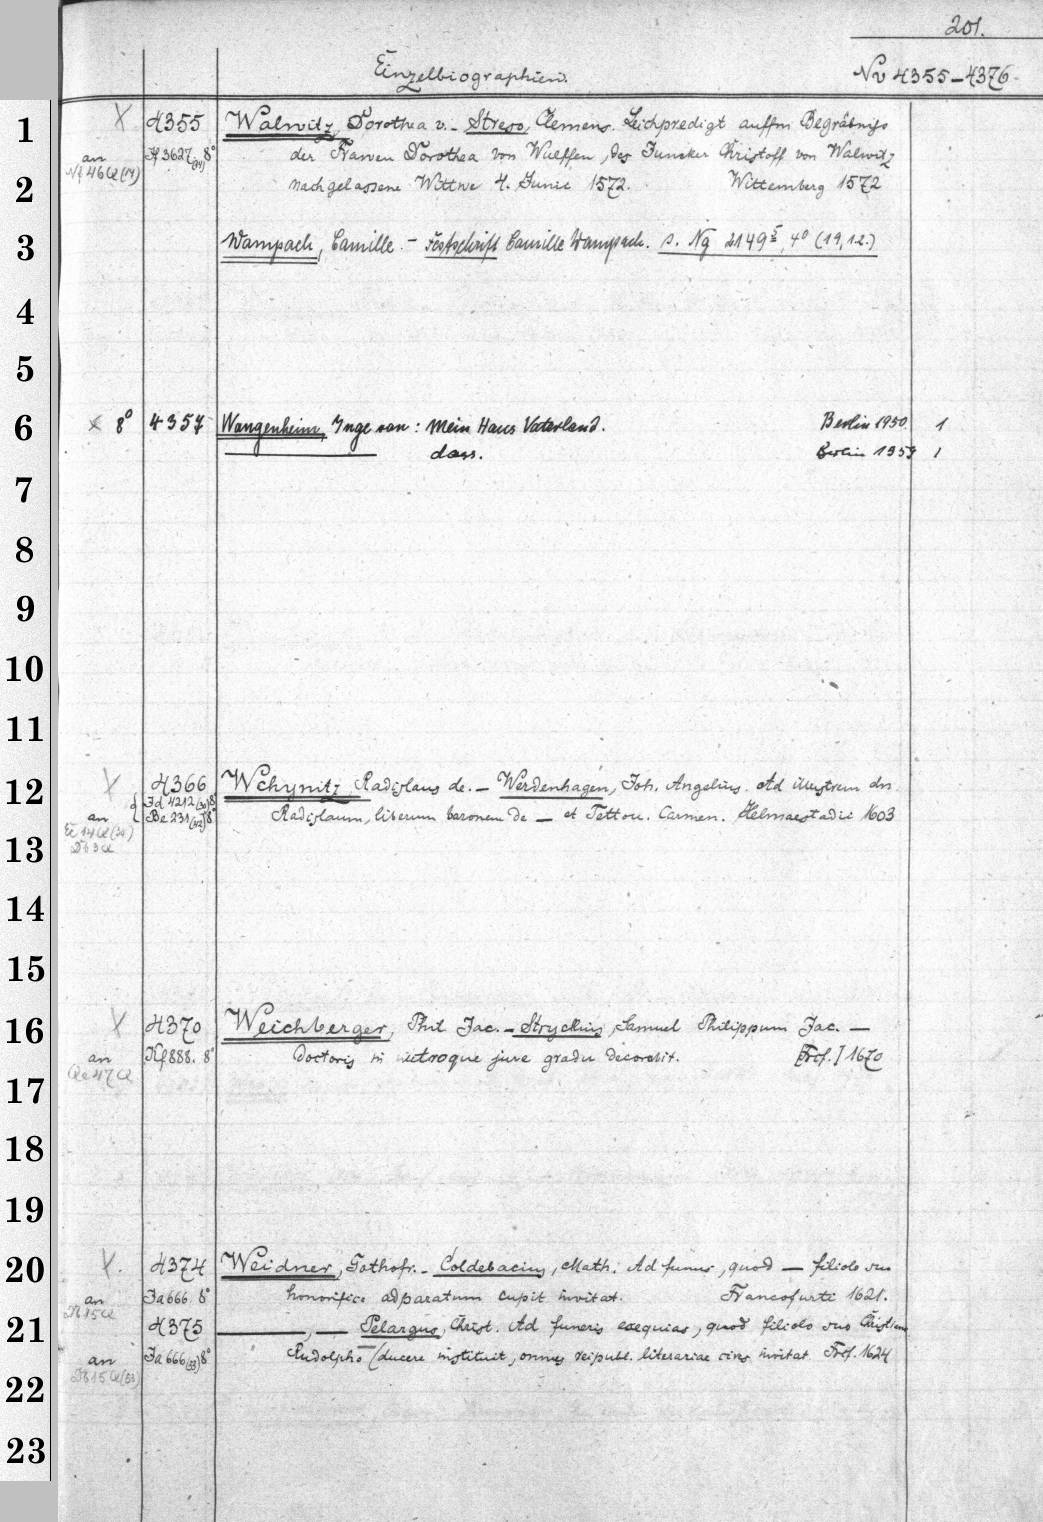 201.
Einzelbiographien.
Nv 4355-4376.
1
X 4355 Walwitz, Dorothea v. - Streso, Clemens. Leichpredigt auffm Begräbniss
an Jf 3627 (14) 8° der Frawen Dorothea von Wulffen, des Juncker Christoff von Walwitz
Nf 46 a (14)
2
nachgelassene Wittwe 4. Junii 1572. Wittemberg 1572
3
Wampach, Camille. - Festschrift Camille Wampach. s. Ng 2149⁵, 4° (19,12.)
4
5
6
x 8° 4357 Wangenheim, Inge von: Mein Haus Vaterland. Berlin 1950. 1
dass. Berlin 1959 1
7
8
9
10
11
12
X 4366 Wchynitz, Radislaus de. - Werdenhagen, Joh. Angelius. Ad illustrem dn
Jd 4212 (30) 8°
an Be 231 (42) 8° Radislaum, liberum baronem de — et Tettou. Carmen. Helmaestadii 1603
13
14
15
16
X 4370 Weichberger, Phil Jac. - Stryckius, Samuel Philippum Jac. —
an Kf 888. 8° Doctoris in utroque jure gradu decorabit. [Frcf.] 1670
Qe 47 a
17
18
19
20
X. 4374 Weidner, Gothofr. - Coldebacius, Math. Ad funus, quod — filiolo suo
an Ja 666 8° honorifico adparatum cupit invitat. Francofurti 1621.
21
4375 ———, — Pelargus, Christ. Ad funeris exequias, quod filiolo suo Christiano
an Ja 666 (53) 8° Rudolpho — (ducere instituit, omnes reipubl. literariae cives invitat Frcf. 1624
15 a (53)
22
23